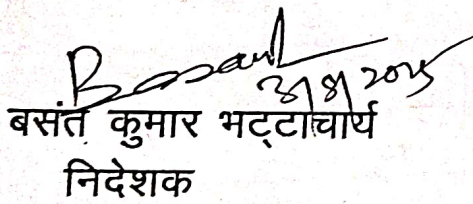 Basant
3/8/2025
बसंत कुमार भट्टाचार्य
निदेशक